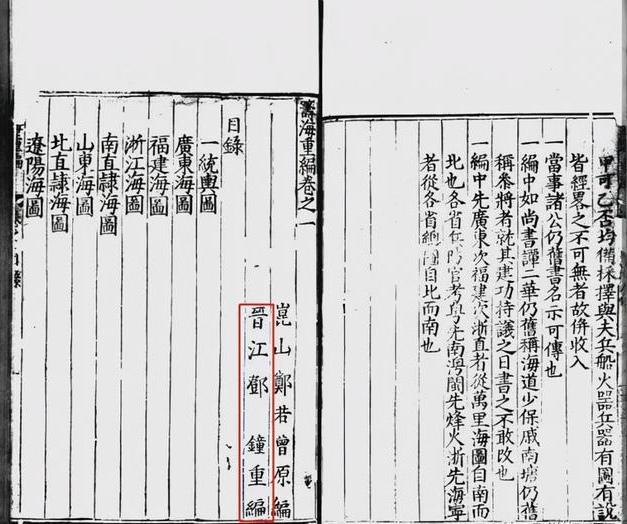 甲可乙否均備採擇與夫兵船火器兵器有圖有說
皆經畧之不可無者故併收入
當事諸公仍舊書名示可傳也
一編中如尚書譚二華仍舊稱海道少保戚南塘仍舊
稱叅將者就其建功持議之日書之不敢改也
一編中先廣東次福建次浙直者從萬里海圖自南而
北也各省兵防官考與先南灣閩先烽火浙先海寧
者從各省總圖自北而南也
籌海重編卷之一
崑山鄭若曾原編
晉江鄧鐘重編
目錄
一統輿圖
廣東海圖
福建海圖
浙江海圖
南直隷海圖
山東海圖
北直隷海圖
遼陽海圖